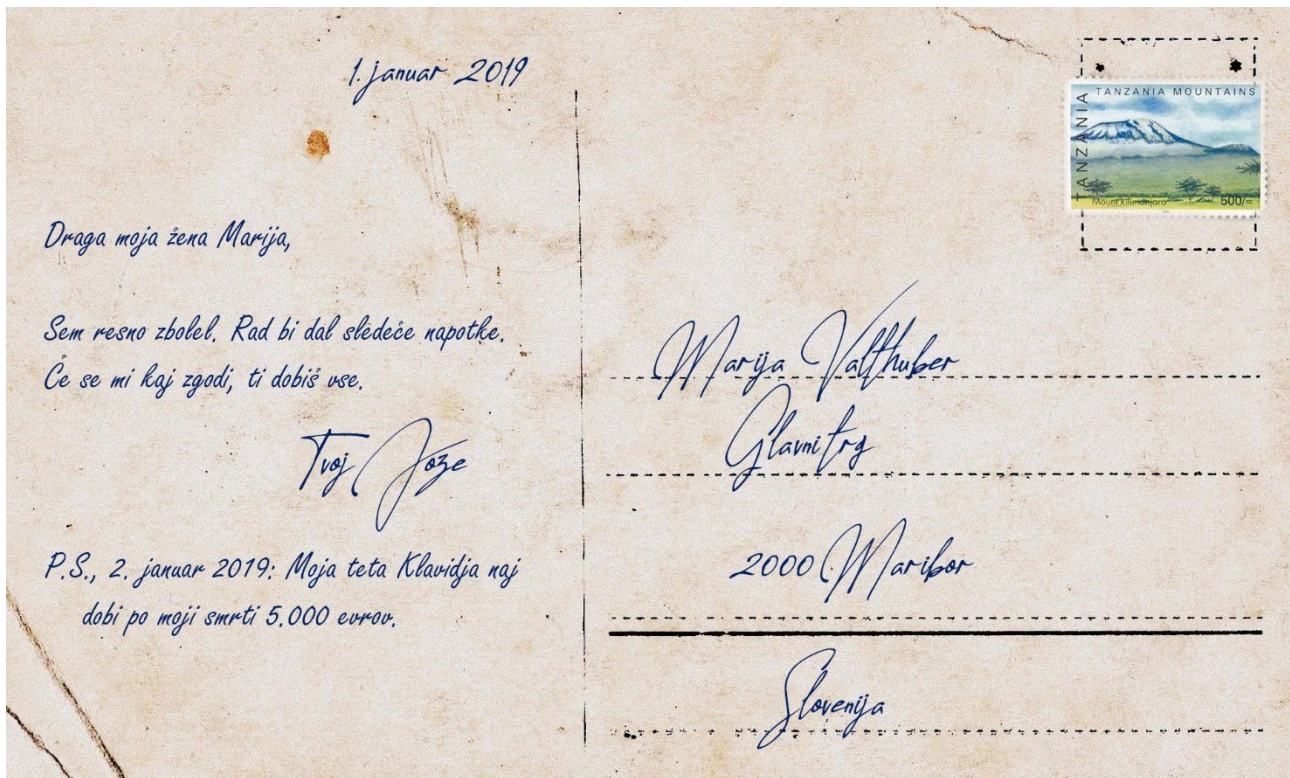 1. januar 2019
Draga moja žena Marija,
Sem resno zbolel. Rad bi dal sledeče napotke.
Če se mi kaj zgodi, ti dobiš vse.
Tvoj Jože
P.S., 2. januar 2019: Moja teta Klavidja naj
dobi po moji smrti 5.000 evrov.
TANZANIA MOUNTAINS
TANZANIA
Mount kilimanjara
500/=
Marija Valthuber
Glavni trg
2000 Maribor
Slovenija